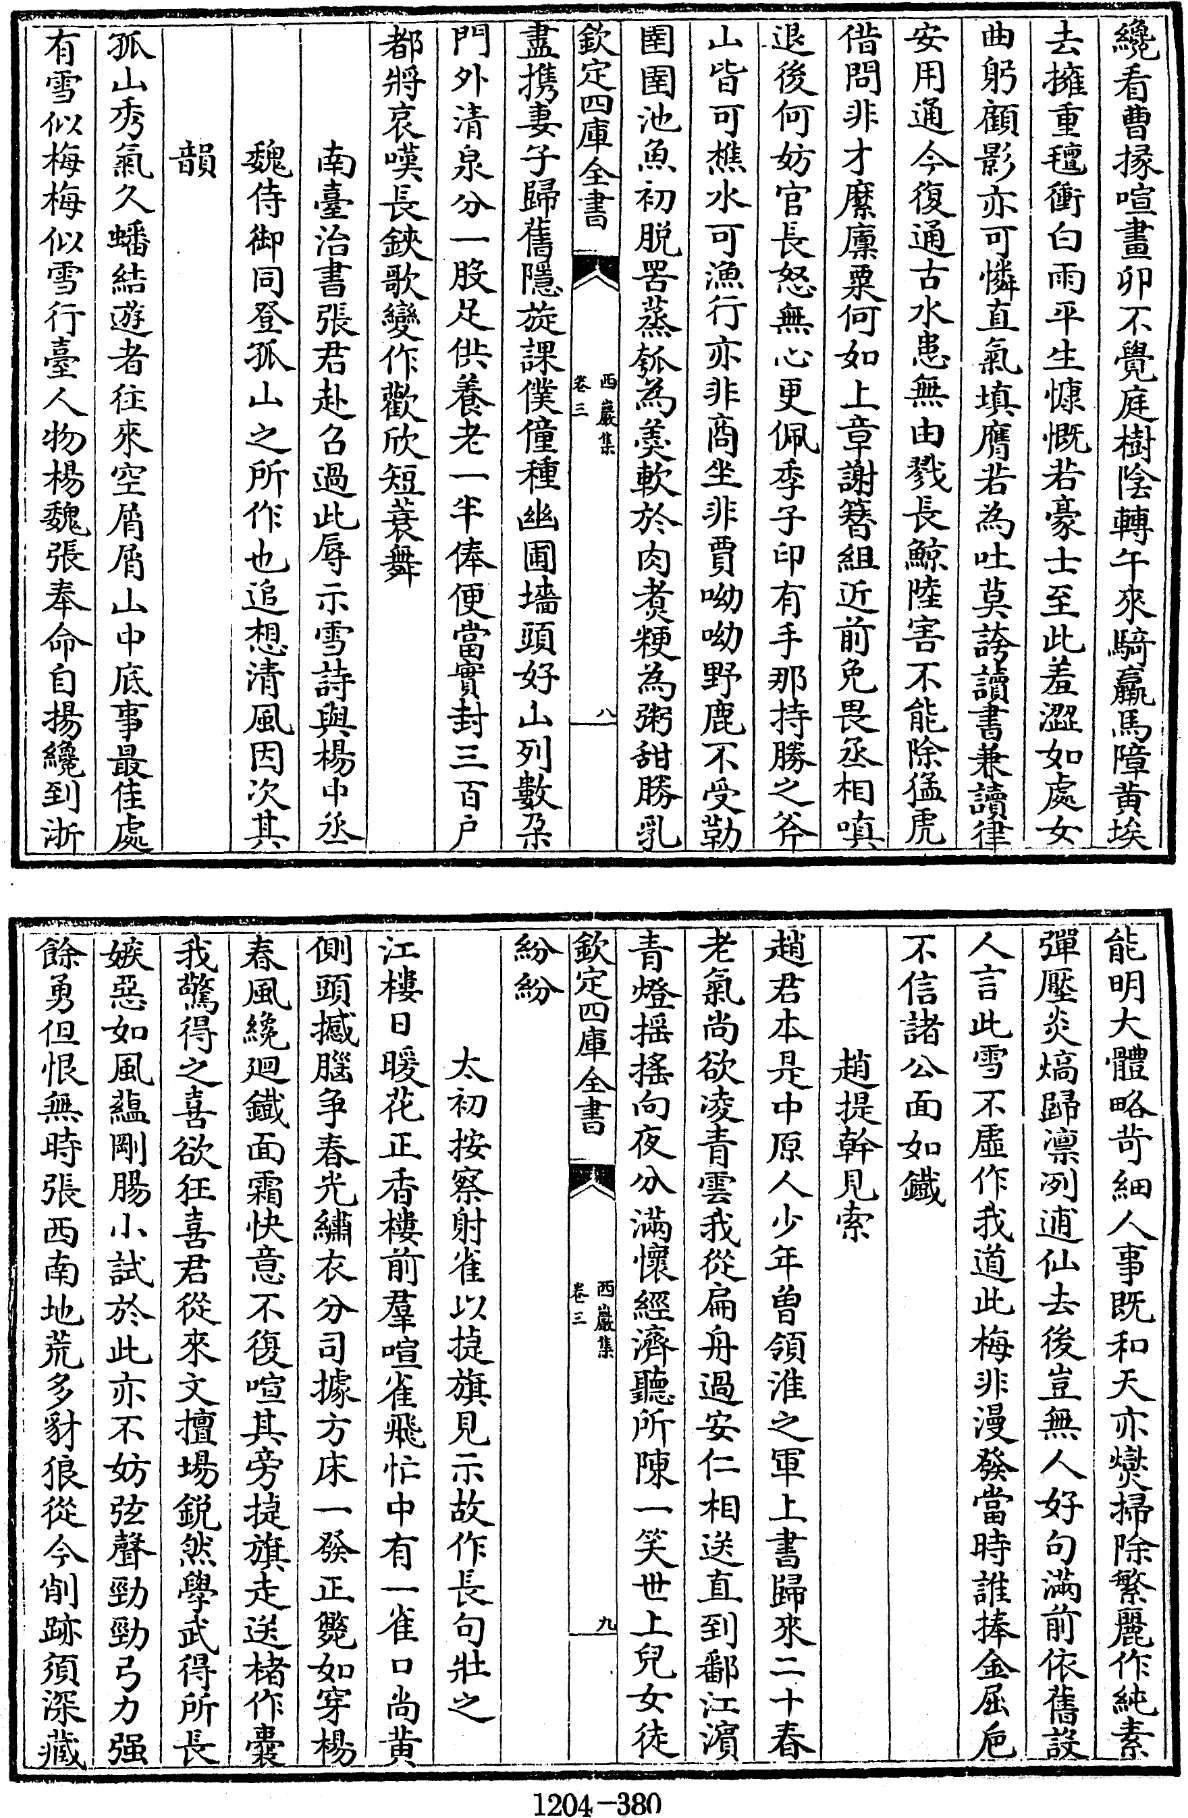 纔看曹掾喧畫卯不覺庭樹陰轉午來騎羸馬障黄埃
去擁重氊衝白雨平生慷慨若豪士至此羞澀如處女
曲躬顧影亦可憐直氣填膺若為吐莫誇讀書兼讀律
安用通今復通古水患無由戮長鯨陸害不能除猛虎
借問非才縻廩粟何如上章謝簪組近前免畏丞相嗔
退後何妨官長怒無心更佩季子印有手那持勝之斧
山皆可樵水可漁行亦非商坐非賈呦呦野鹿不受勒
圉圉池魚初脱罟蒸瓠為羮軟於肉煮粳為粥甜勝乳
欽定四庫全書
西巖集
卷三
八
盡携妻子歸舊隱旋課僕僮種幽圃墻頭好山列數朶
門外清泉分一股足供養老一半俸便當實封三百户
都將哀嘆長鋏歌變作歡欣短蓑舞
南臺治書張君赴召過此辱示雪詩與楊中丞
魏侍御同登孤山之所作也追想清風因次其
韻
孤山秀氣久蟠結遊者往來空屑屑山中底事最佳處
有雪似梅梅似雪行臺人物楊魏張奉命自揚纔到浙
能明大體略苛細人事既和天亦爕掃除繁麗作純素
彈壓炎熇歸凛冽逋仙去後豈無人好句滿前依舊設
人言此雪不虚作我道此梅非漫發當時誰捧金屈巵
不信諸公面如鐵
趙提幹見索
趙君本是中原人少年曽領淮之軍上書歸來二十春
老氣尚欲凌青雲我從扁舟過安仁相送直到鄱江濵
青燈摇摇向夜分滿懷經濟聽所陳一笑世上兒女徒
欽定四庫全書
西巖集
卷三
九
紛紛
太初按察射雀以㨗旗見示故作長句壯之
江樓日暖花正香樓前羣喧雀飛忙中有一雀口尚黄
側頭撼腦争春光繡衣分司據方床一發正斃如穿楊
春風纔廻鐵面霜快意不復喧其旁㨗旗走送楮作囊
我驚得之喜欲狂喜君從來文擅塲鋭然學武得所長
嫉惡如風藴剛腸小試於此亦不妨弦聲勁勁弓力强
餘勇但恨無時張西南地荒多豺狼從今削跡須深藏
1204-380